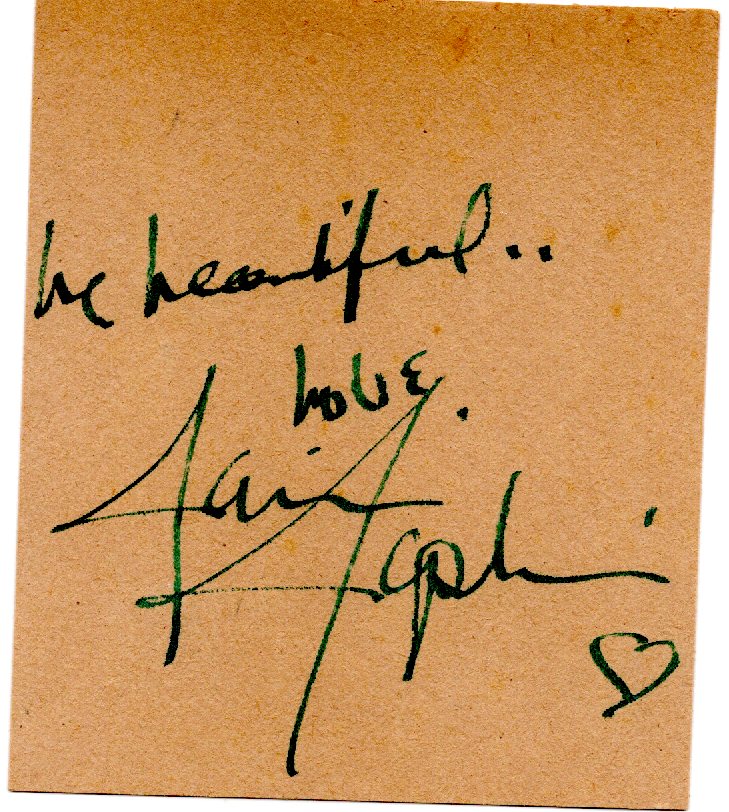 be beautiful..
love.
Janis
Joplin